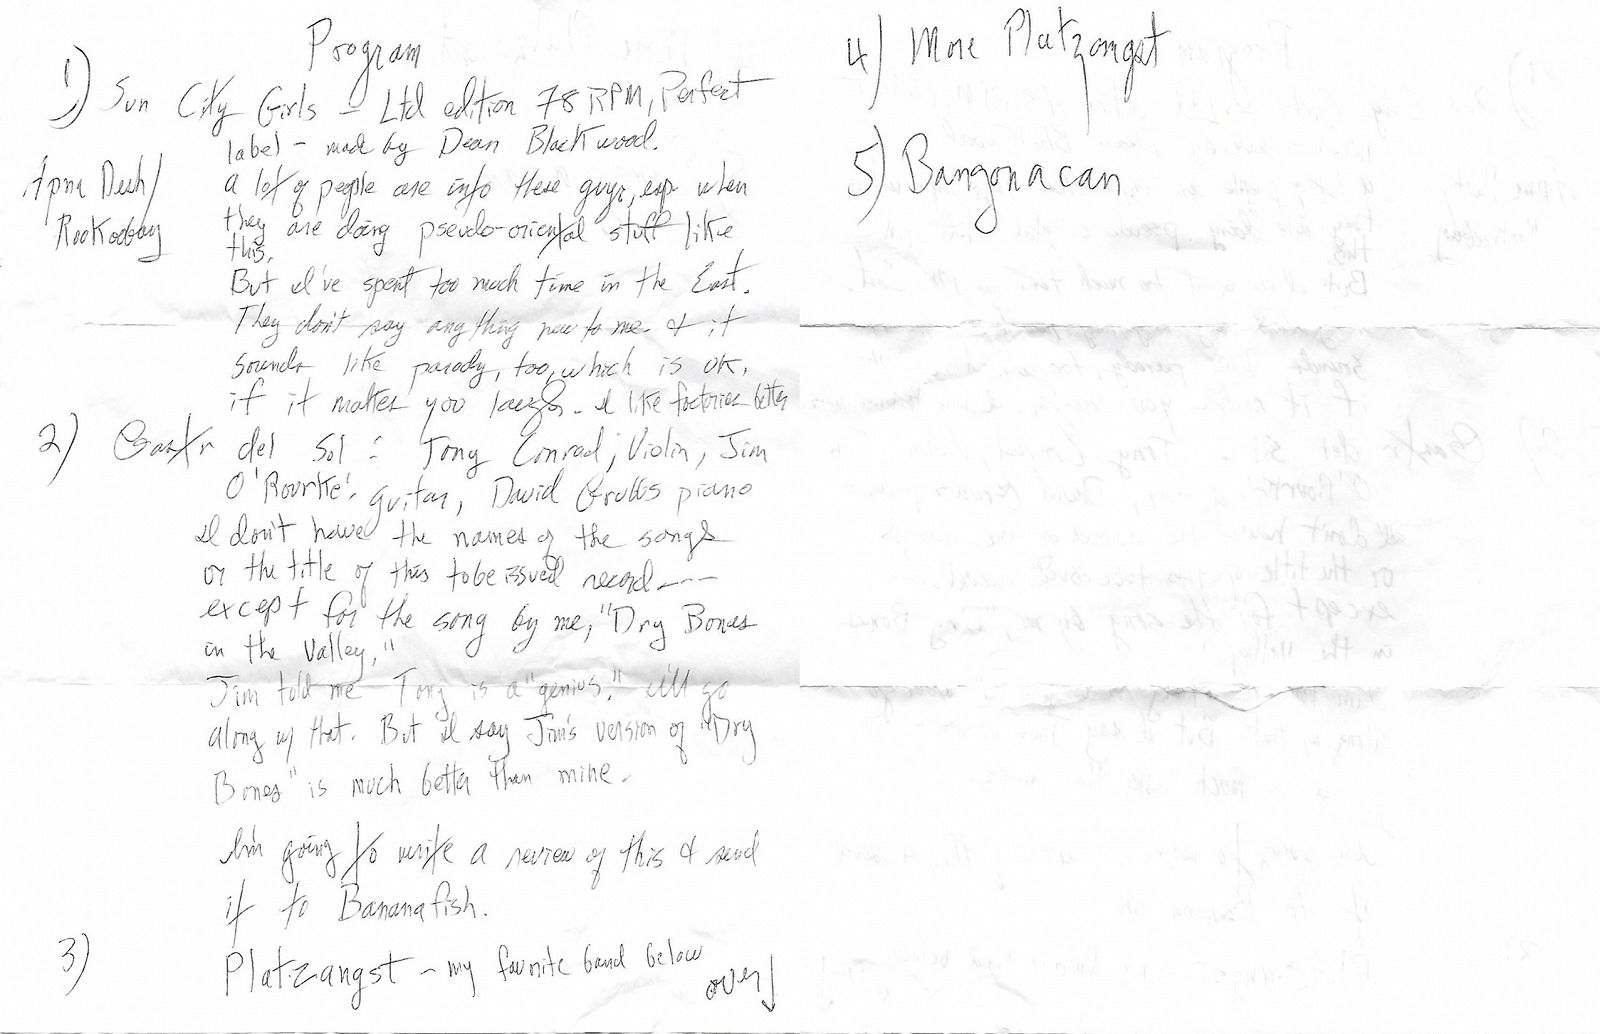 Program
1) Sun City Girls - Ltd edition 78 RPM, Perfect
label - made by Dean Blackwood.
Apna Desh/
Rookoobay
a lot of people are into these guys, esp when
they are doing pseudo-oriental stuff like
this.
But I've spent too much time in the East.
They don't say anything new to me & it
sounds like parody, too, which is OK,
if it makes you laugh. I like factories better
2) Gastr del Sol: Tony Conrad, Violin, Jim
O'Rourke, guitar, David Grubbs piano
I don't have the names of the songs
or the title of this to be issued record----
except for the song by me, "Dry Bones
in the Valley,"
Jim told me Tony is a "genius." I'll go
along w/ that. But I say Jim's version of "Dry
Bones" is much better than mine.
I'm going to write a review of this & send
it to Bananafish.
3) Platzangst - my favorite band below
over
4) More Platzangst
5) Bangonacan